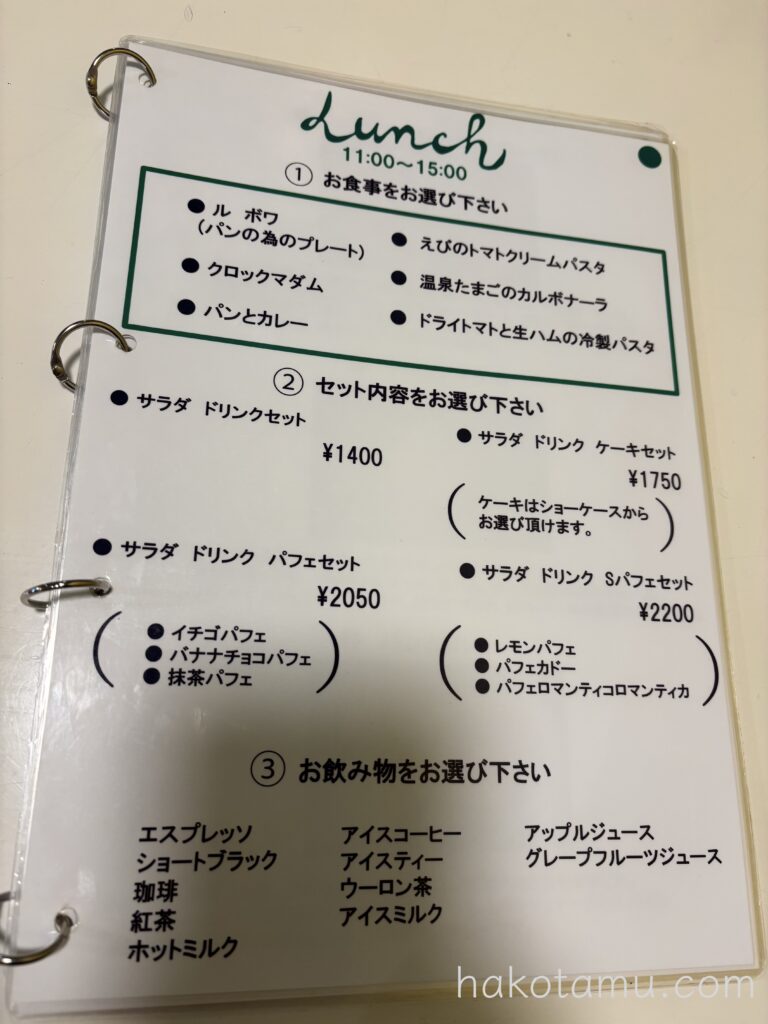 Lunch
11:00～15:00
① お食事をお選び下さい
● ル ボワ
（パンの為のプレート）
● クロックマダム
● パンとカレー
● えびのトマトクリームパスタ
● 温泉たまごのカルボナーラ
● ドライトマトと生ハムの冷製パスタ
② セット内容をお選び下さい
● サラダ ドリンクセット
¥1400
● サラダ ドリンク ケーキセット
¥1750
（ケーキはショーケースから
お選び頂けます。）
● サラダ ドリンク パフェセット
¥2050
（● イチゴパフェ
● バナナチョコパフェ
● 抹茶パフェ）
● サラダ ドリンク Sパフェセット
¥2200
（● レモンパフェ
● パフェカドー
● パフェロマンティコロマンティカ）
③ お飲み物をお選び下さい
エスプレッソ
ショートブラック
珈琲
紅茶
ホットミルク
アイスコーヒー
アイスティー
ウーロン茶
アイスミルク
アップルジュース
グレープフルーツジュース
hakotamu.com